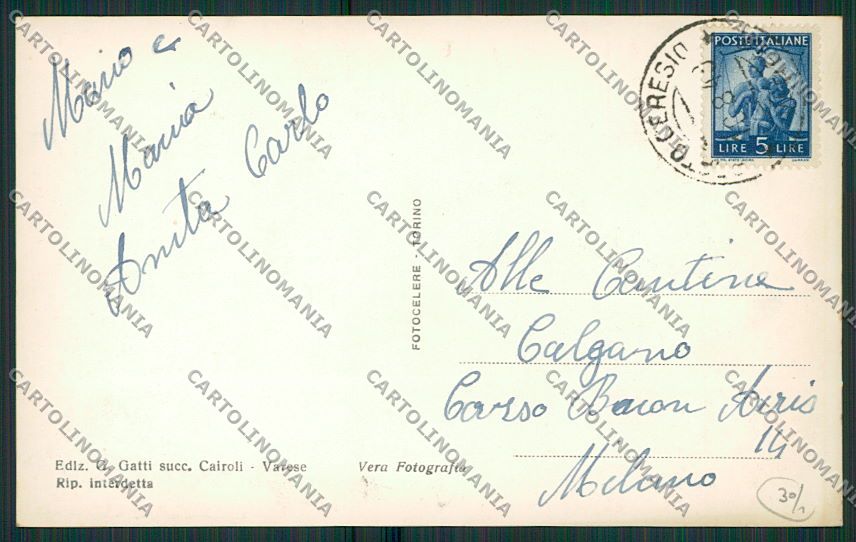 Mario e
Maria
Anita Carlo
FOTOCELERE - TORINO
POSTE ITALIANE
LIRE 5 LIRE
CERESIO
Alle Cantine
Calgano
Corso Buon Airis
14
Milano
Ediz. G. Gatti succ. Cairoli - Varese
Rip. interdetta
Vera Fotografia
30/1
CARTOLINOMANIA